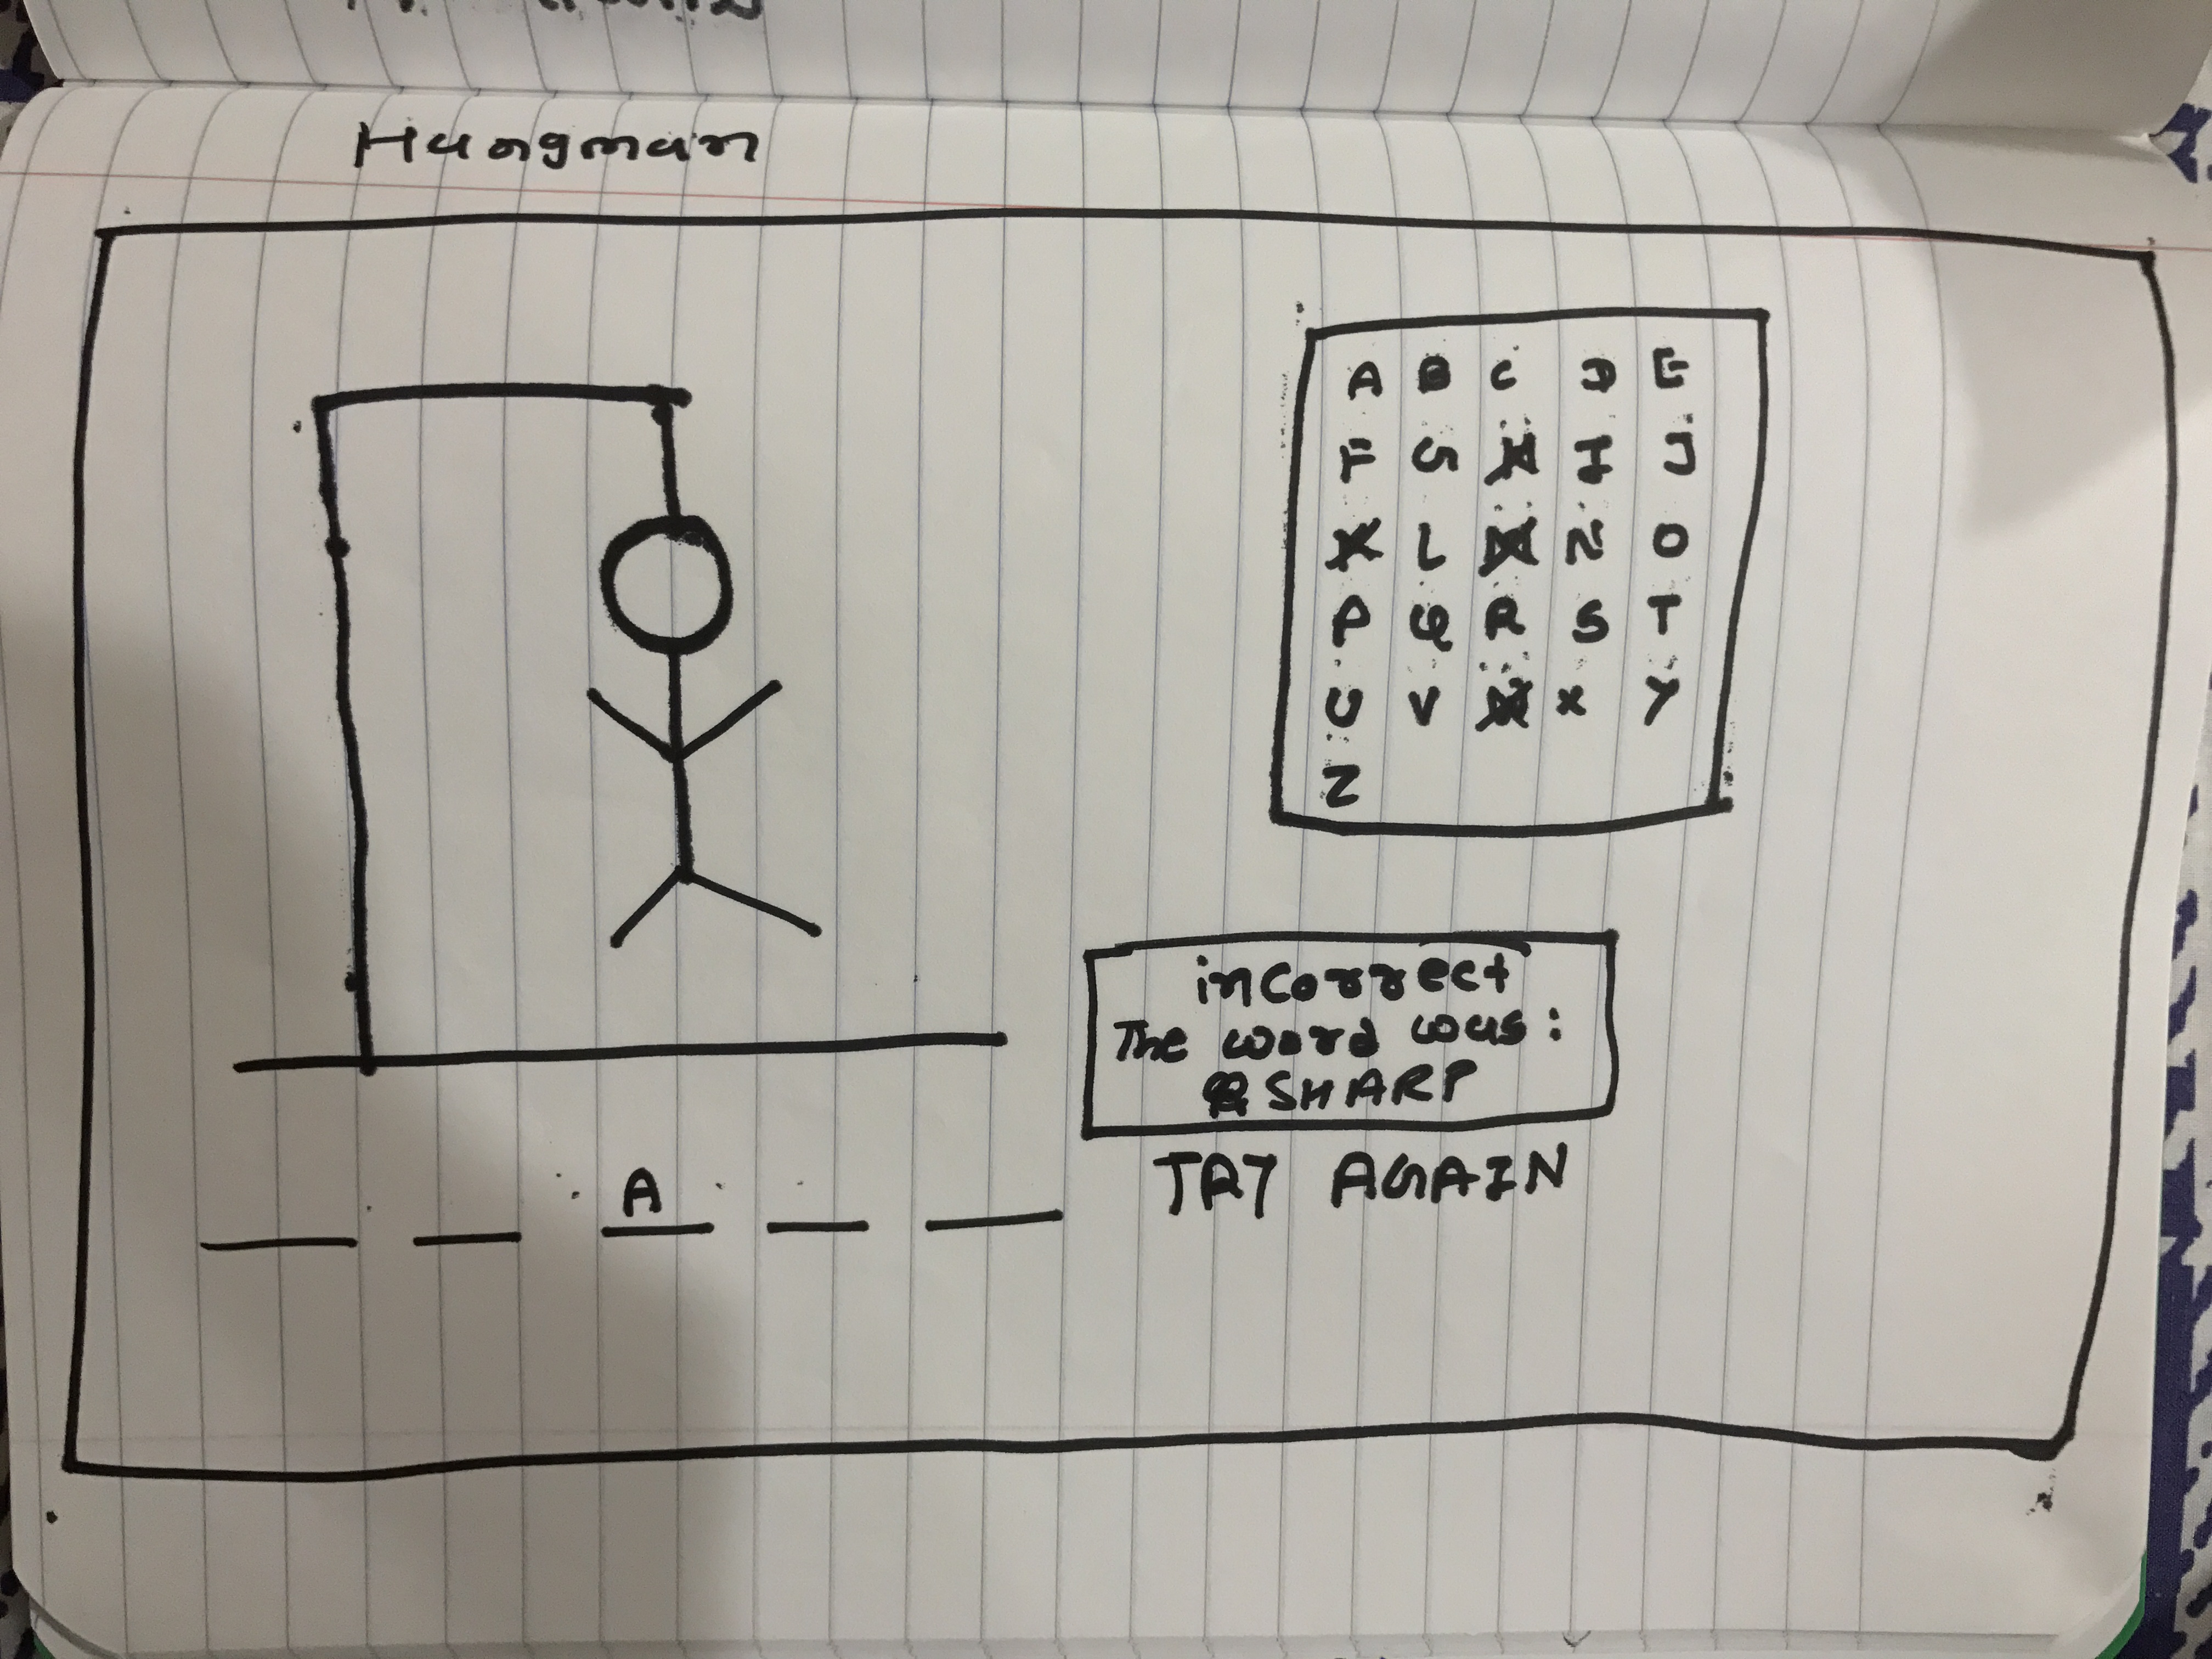 Hangman
A B C D E
F G H I J
K L M N O
P Q R S T
U V W X Y
Z
incorrect
The word was:
SHARP
TRY AGAIN
A